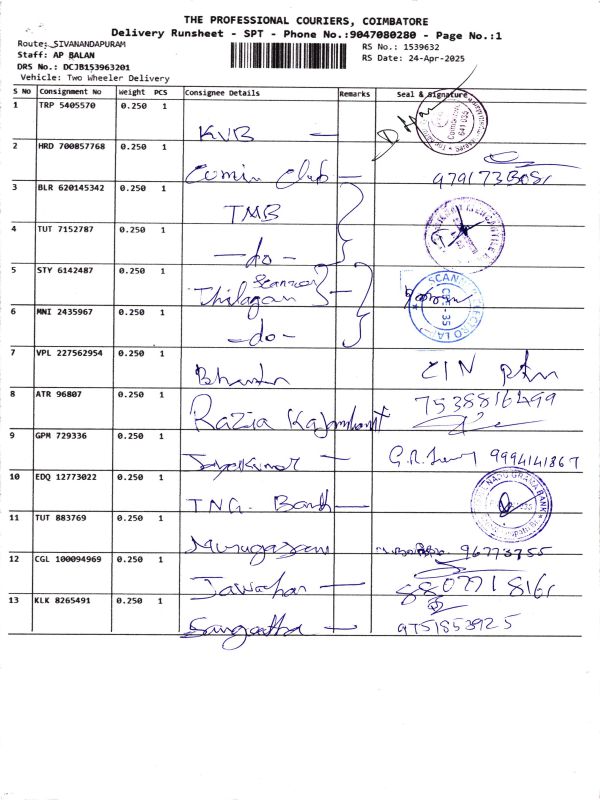 THE PROFESSIONAL COURIERS, COIMBATORE
Delivery Runsheet - SPT - Phone No.:9047080280 - Page No.:1
Route: SIVANANDAPURAM
RS No.: 1539632
Staff: AP BALAN
RS Date: 24-Apr-2025
DRS No.: DCJB153963201
Vehicle: Two Wheeler Delivery
S NO Consignment No Weight PCS Consignee Details Remarks Seal & Signature
1 TRP 5405570 0.250 1 KVB —
2 HRD 700857768 0.250 1 Comin Club —
3 BLR 620145342 0.250 1 TMB
4 TUT 7152787 0.250 1 —do—
5 STY 6142487 0.250 1 Thilagan Scanray
6 MNI 2435967 0.250 1 —do—
7 VPL 227562954 0.250 1
8 ATR 96807 0.250 1 Razia 7538816499
9 GPM 729336 0.250 1 Jayakumar — 9994141867
10 EDQ 12773022 0.250 1 TNG. Bank —
11 TUT 883769 0.250 1 Murugasan
12 CGL 100094969 0.250 1 Jawahar —
13 KLK 8265491 0.250 1 Sangeetha — 9751853925